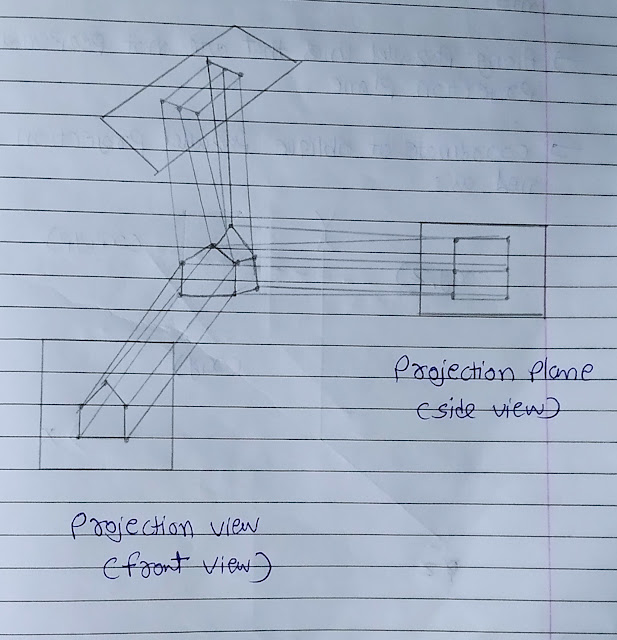 Projection Plane
(side view)
Projection view
(front view)